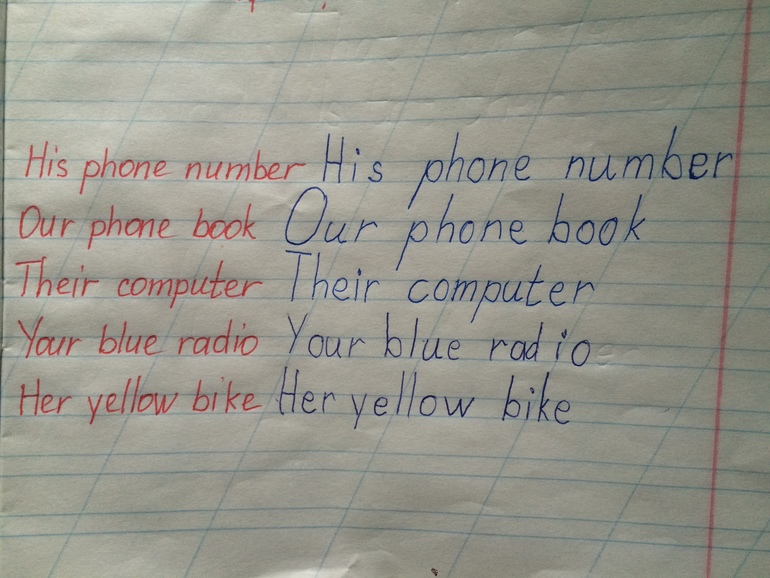 His phone number His phone number
Our phone book Our phone book
Their computer Their computer
Your blue radio Your blue radio
Her yellow bike Her yellow bike